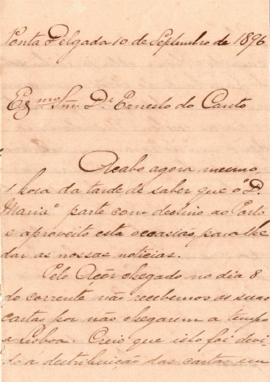 Ponta Delgada 10 de Septembro de 1896
Exmo Snr. Dr Ernesto do Canto
Acabo agora mesmo,
1 hora da tarde de saber que o "D.
Maria" parte com destino ao Porto
e aproveito esta occasião para lhe
dar as nossas noticias.
Pelo Açôr chegado no dia 8
do corrente não recebemos as suas
cartas por não chegarem a tempo
a Lisboa. Creio que isto foi devi-
do a destribuição das cartas em